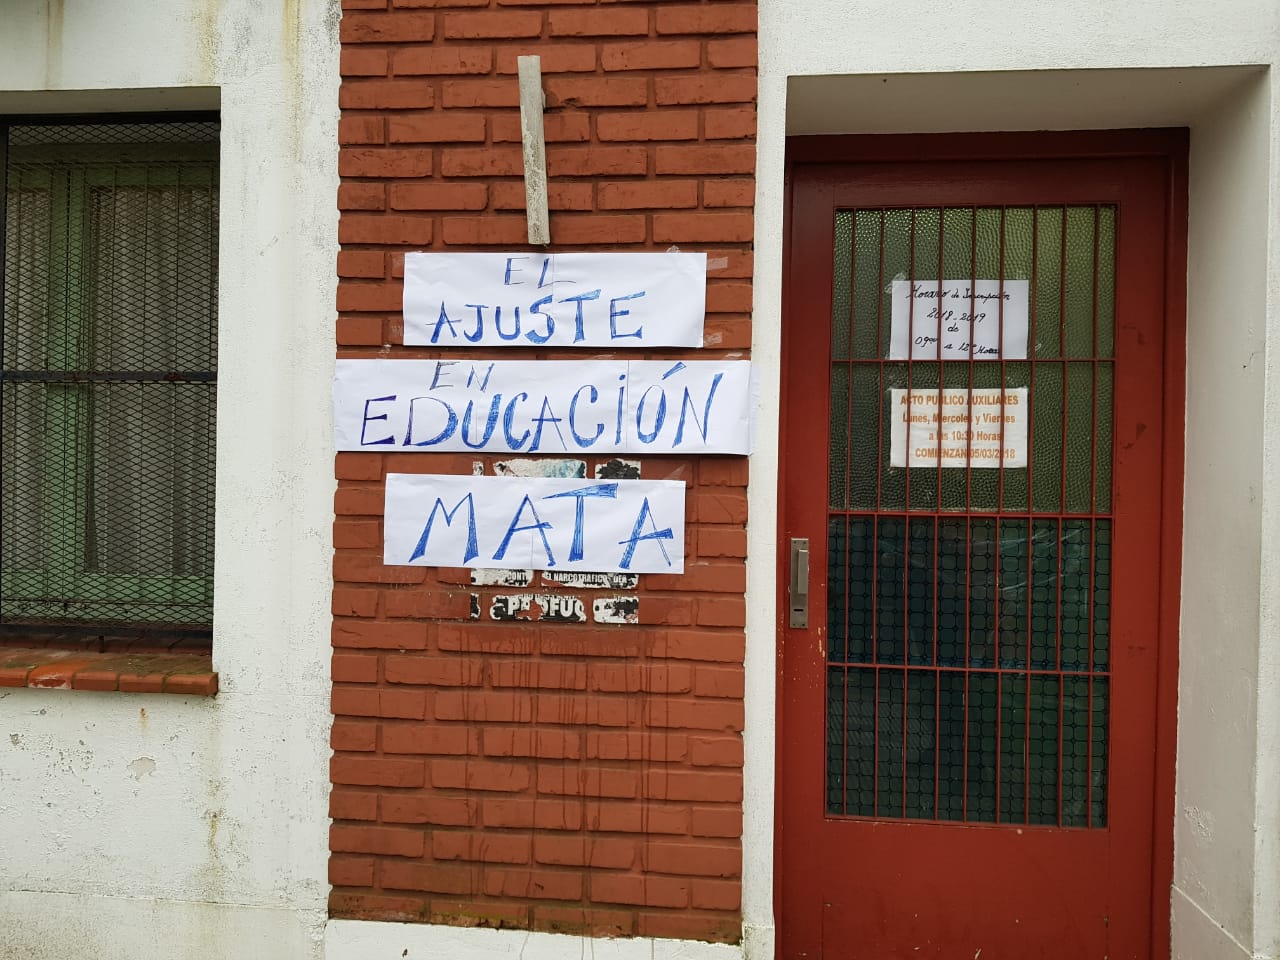 EL
AJUSTE
EN
EDUCACIÓN
MATA
EL NARCOTRÁFICO
Horario de Inscripción
2018-2019
de
09⁰⁰ a 12⁰⁰ Horas
ACTO PUBLICO AUXILIARES
Lunes, Miercoles y Viernes
a las 10:30 Horas
COMIENZAN 05/03/2018